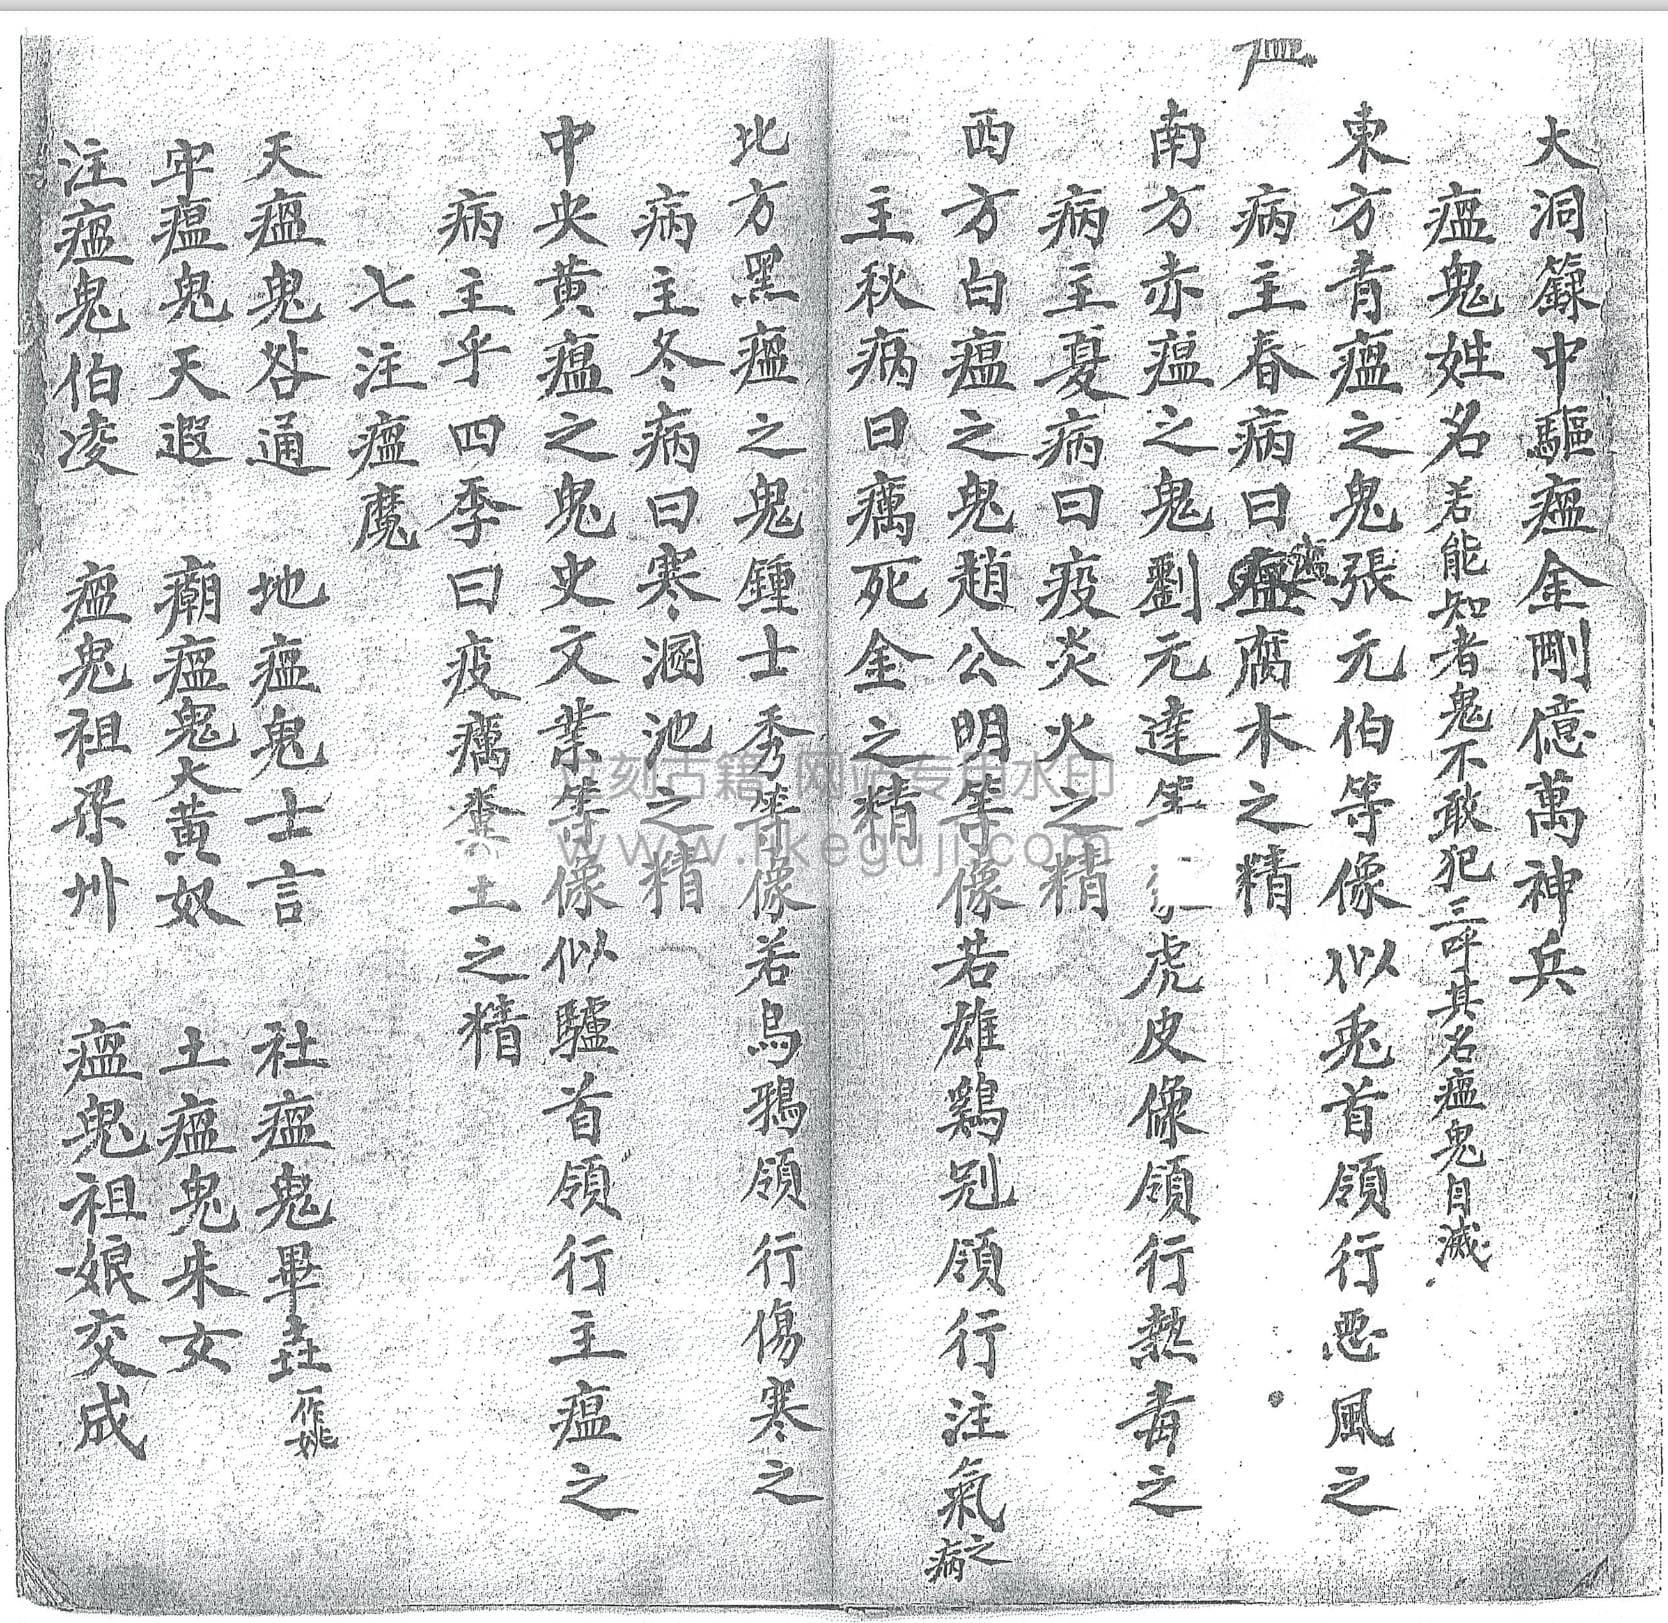 大洞籙中驅瘟金剛億萬神兵
瘟鬼姓名若能知者鬼不敢犯三呼其名瘟鬼自滅
東方青瘟之鬼張元伯等像似兎首領行惡風之
病主春病曰腐木之精
南方赤瘟之鬼劉元達等虎皮像領行熱毒之
病主夏病曰疫炎火之精
西方白瘟之鬼趙公明等像若雄鷄別領行注氣之病
主秋病曰癘死金之精
北方黑瘟之鬼鍾士秀等像若烏鴉領行傷寒之
病主冬病曰寒溷池之精
中央黄瘟之鬼史文業等像似驢首領行主瘟之
病主乎四季曰疫癘糞土之精
七注瘟魔
天瘟鬼咎通 地瘟鬼士言 社瘟鬼畢 作姚
牢瘟鬼天遐 廟瘟鬼大黄奴 土瘟鬼朱女
注瘟鬼伯凌 瘟鬼祖梁州 瘟鬼祖娘交成
刻古籍 网站专用水印
www.hkeguji.com